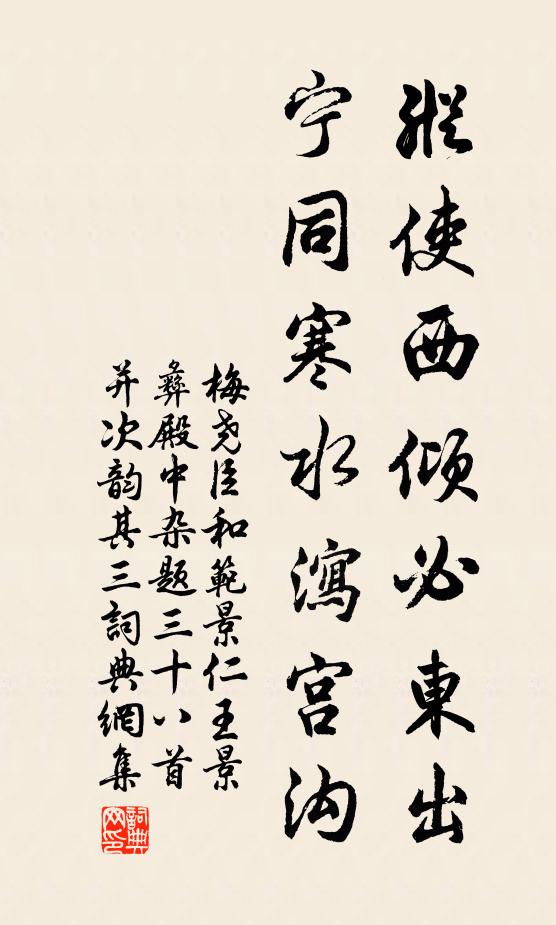 縱使西傾必東出
宁同寒水瀉宫沟
梅尧臣和範景仁王景
彝殿中杂题三十八首
并次韵其三詞典網集
詞典
网印